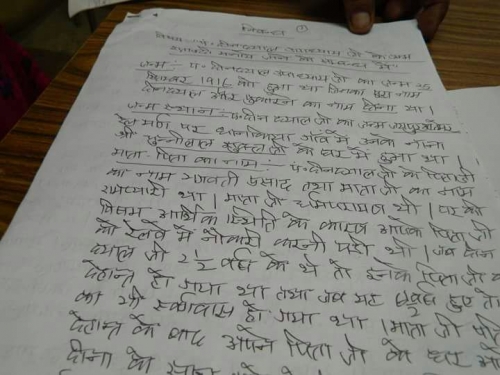 निबन्ध ①
विषय :- पं. दीनदयाल उपाध्याय जी के जन्म
जन्म :- पं. दीनदयाल उपाध्याय जी का जन्म 25
सितम्बर 1916 को हुआ था जिनका पुरा नाम
दीनदयाल और पुकारने का नाम दीना था।
जन्म स्थान :- पं. दीन दयाल जी का जन्म जयपुर अजमेर
रेल मार्ग पर धानकिया गाँव में उनके नाना
श्री चुन्नीलाल शुक्ल जी के घर में हुआ था।
माता पिता का नाम :- पं. दीनदयाल जी के पिताजी
का नाम भगवती प्रसाद तथा माता जी का नाम
रामप्यारी था। माता जी धर्मपरायण थी। घर की
विषम आर्थिक स्थिति के कारण आपके पिता जी
को रेलवे में नौकरी करनी पड़ी थी। जब दीन
दयाल जी 2½ वर्ष के थे तो इनके पिता जी का
देहान्त हो गया था तथा जब यह वर्ष हुए तो
का भी स्वर्गवास हो गया था। माता जी
देहान्त के बाद अपने पिता जी के घर
दीना को साथ